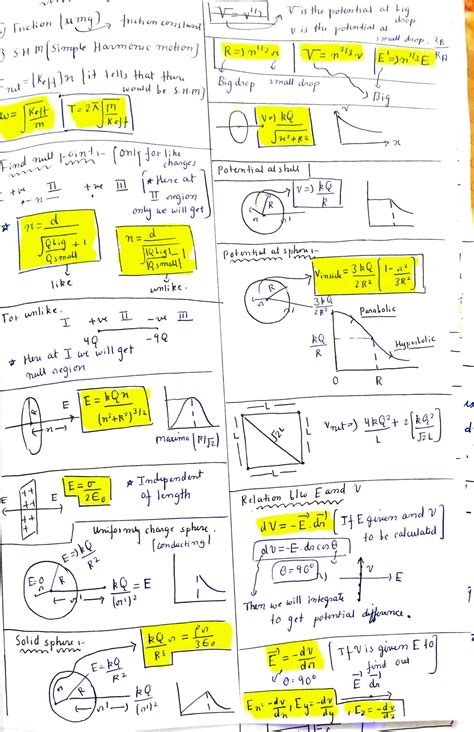 Friction (μmg) → friction constant
S.H.M (Simple Harmonic motion)
Fnet = (Keff)x (it tells that there would be S.H.M)
ω = √(Keff/m)
T = 2π√(m/Keff)
Find null point :- (only for like charges)
+ve II +ve III
(* Here at II region only we will get)
x = d / (√(Qbig/Qsmall) + 1)
like
x = d / (√(|Qbig|/|Qsmall|) - 1)
unlike.
For unlike.
I +ve II -ve III
4Q -9Q
* Here at I we will get null region
E
E = kQx / (x²+R²)^3/2
maxima (R/√2)
E = σ / 2ε₀
* Independent of length
Uniformly charge sphere. (conducting)
E=0
R
E=) kQ/R²
kQ/(r')² = E
Solid sphere :-
kQ/R³ r = ρr/3ε₀
E = kQ/R²
kQ/(r')²
V = v is the potential at big drop
v is the potential at small drop.
R =) n^1/3 r
V = n^2/3 v
E' =) n^1/3 E
Big drop small drop
Big
V=) kQ / √(x²+R²)
V
x
Potential at shell
V=) kQ/R
Potential at sphere :-
Vinside = 3kQ/2R² (1 - r²/3R²)
3kQ/2R²
kQ/R
Parabolic
Hyperbolic
O R
L
L
L
L
√2L
Vnet =) 4kQ²/L + 2[kQ²/√2L]
Relation b/w E and V
dV = -E.dr
(If E given and V to be calculated)
dV = -E.dr cosθ
θ = 90°
V
E
Then we will integrate to get potential difference.
E = -dv/dr
(If V is given E to find out)
θ = 90°
E dr
Ex = -dv/dx, Ey = -dv/dy, Ez = -dv/dz